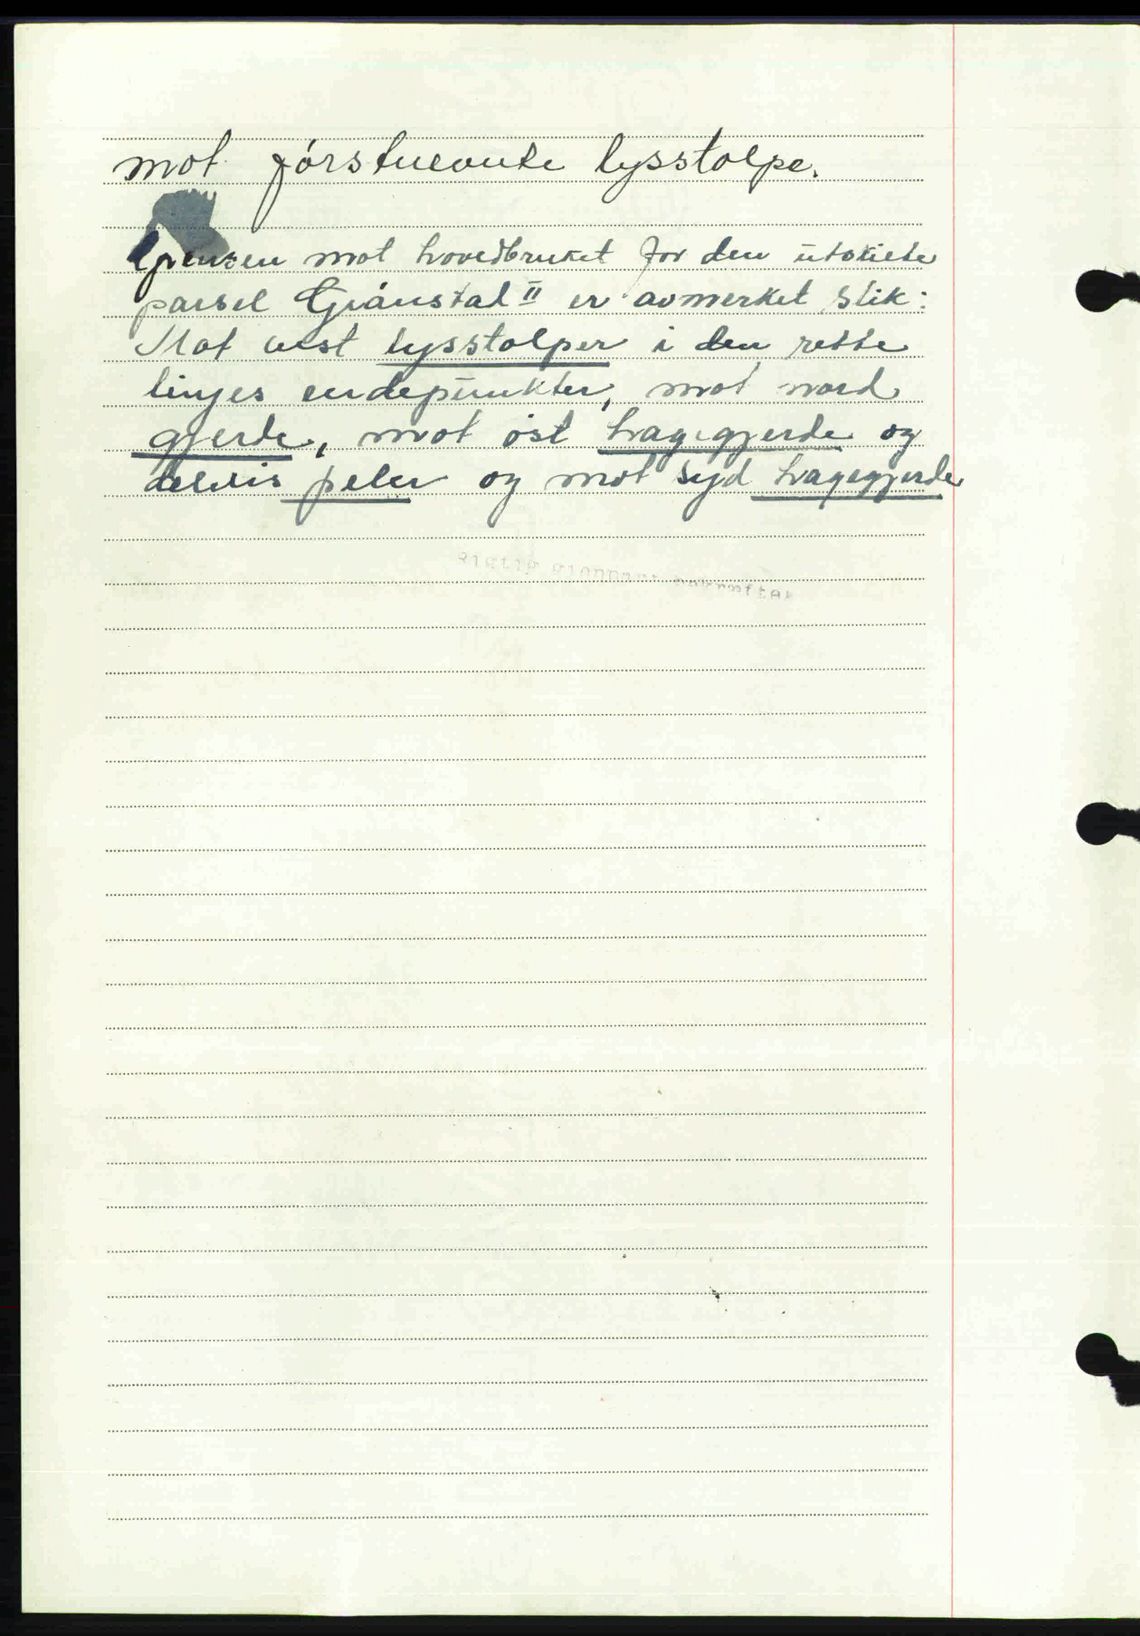 mot förstnevnte lysstolpe.
Grensen mot hovedbruket for den utskilte
parsel Grånstal II er avmerket slik:
Mot vest lysstolper i den rette
linjes endepunkter, mot nord
gjerde, mot öst hagegjerde og
delvis peler og mot syd hagegjerde
bekreftet